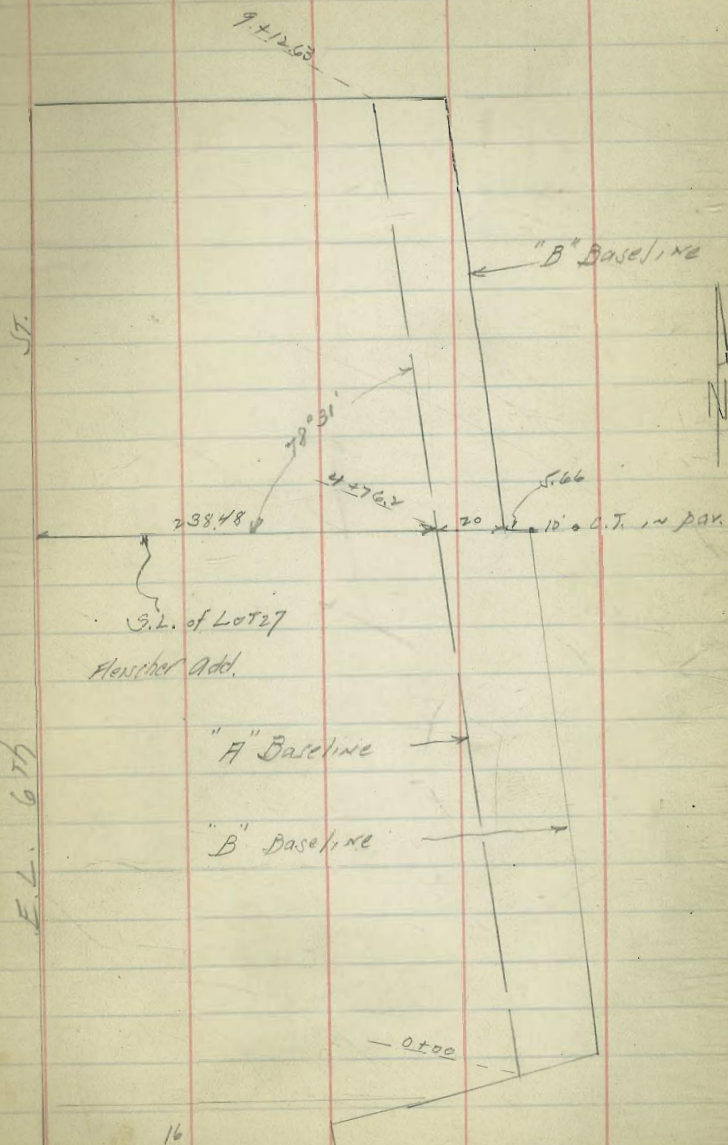 9+12.63
"B" Baseline
N
ST.
78°31'
4+76.2
5.66
238.48
20
10' C.T. in pav.
S.L. of LOT 27
Fleischer Add.
"A" Baseline
"B" Baseline
E.L. 6TH
0+00
16